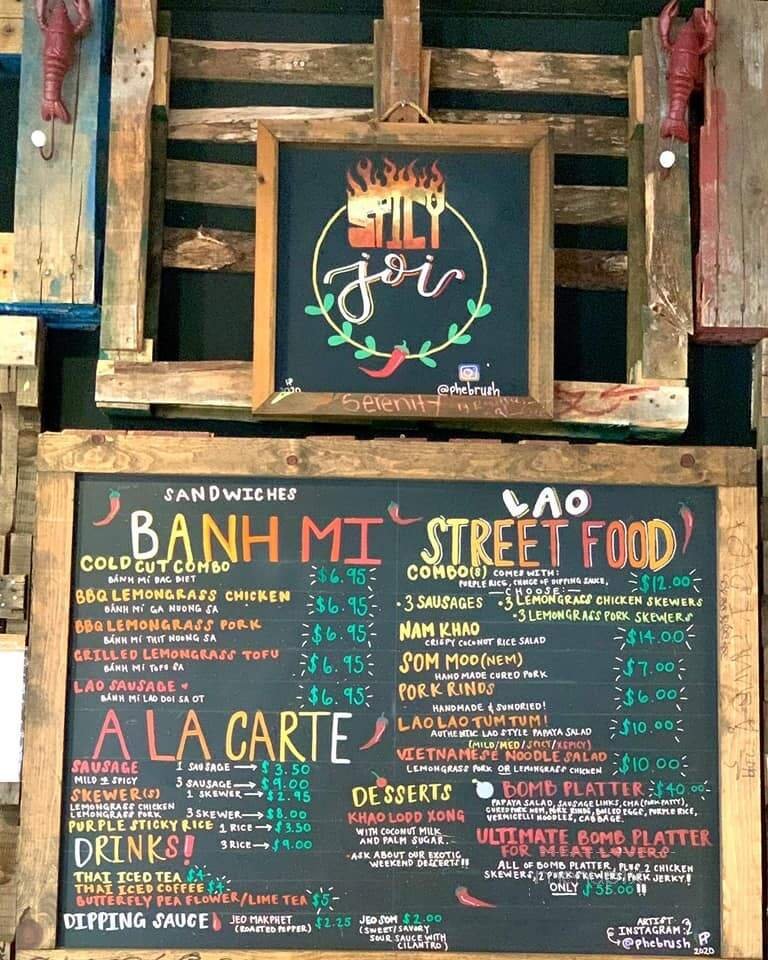 SPICY
joi
@phebrush
2020
Serenity
SANDWICHES
BANH MI
COLD CUT COMBO
BÁNH MÌ DAC BIET
$6.95
BBQ LEMONGRASS CHICKEN
BÁNH MÌ GA NUONG SA
$6.95
BBQ LEMONGRASS PORK
BÁNH MÌ THIT NUONG SA
$6.95
GRILLED LEMONGRASS TOFU
BÁNH MÌ TOFU SA
$6.95
LAO SAUSAGE
BÁNH MÌ LAO DOI SA OT
$6.95
A LA CARTE
SAUSAGE
MILD or SPICY
1 SAUSAGE → $3.50
3 SAUSAGE → $9.00
SKEWER(S)
LEMONGRASS CHICKEN
LEMONGRASS PORK
1 SKEWER → $2.95
3 SKEWER → $8.00
PURPLE STICKY RICE 1 RICE → $3.50
3 RICE → $9.00
DRINKS!
THAI ICED TEA $4
THAI ICED COFFEE $4
BUTTERFLY PEA FLOWER/LIME TEA $5
DIPPING SAUCE
JEO MAKPHET $2.25
(ROASTED PEPPER)
JEO SOM $2.00
(SWEET/SAVORY
SOUR SAUCE WITH
CILANTRO)
LAO
STREET FOOD
COMBO(S) COMES WITH:
PURPLE RICE, CHOICE OF DIPPING SAUCE,
$12.00
—CHOOSE:—
•3 SAUSAGES •3 LEMONGRASS CHICKEN SKEWERS
•3 LEMONGRASS PORK SKEWERS
NAM KHAO
CRISPY COCONUT RICE SALAD
$14.00
SOM MOO (NEM)
HAND MADE CURED PORK
$7.00
PORK RINDS
HANDMADE & SUNDRIED!
$6.00
LAO LAO TUM TUM!
AUTHENTIC LAO STYLE PAPAYA SALAD
(MILD/MED/SPICY/XSPICY)
$10.00
VIETNAMESE NOODLE SALAD
LEMONGRASS PORK OR LEMONGRASS CHICKEN
$10.00
DESSERTS
KHAO LODD XONG
WITH COCONUT MILK
AND PALM SUGAR.
•ASK ABOUT OUR EXOTIC
WEEKEND DESSERTS!!
BOMB PLATTER $40.00
PAPAYA SALAD, SAUSAGE LINKS, CHA (PORK PATTY),
CURED PORK NEM, PORK RINDS, BOILED EGGS, PURPLE RICE,
VERMICELLI NOODLES, CABBAGE.
ULTIMATE BOMB PLATTER
FOR MEAT LOVERS
ALL OF BOMB PLATTER, PLUS 2 CHICKEN
SKEWERS, 2 PORK SKEWERS, PORK JERKY!
ONLY $55.00!!
ARTIST
INSTAGRAM:
@phebrush
2020